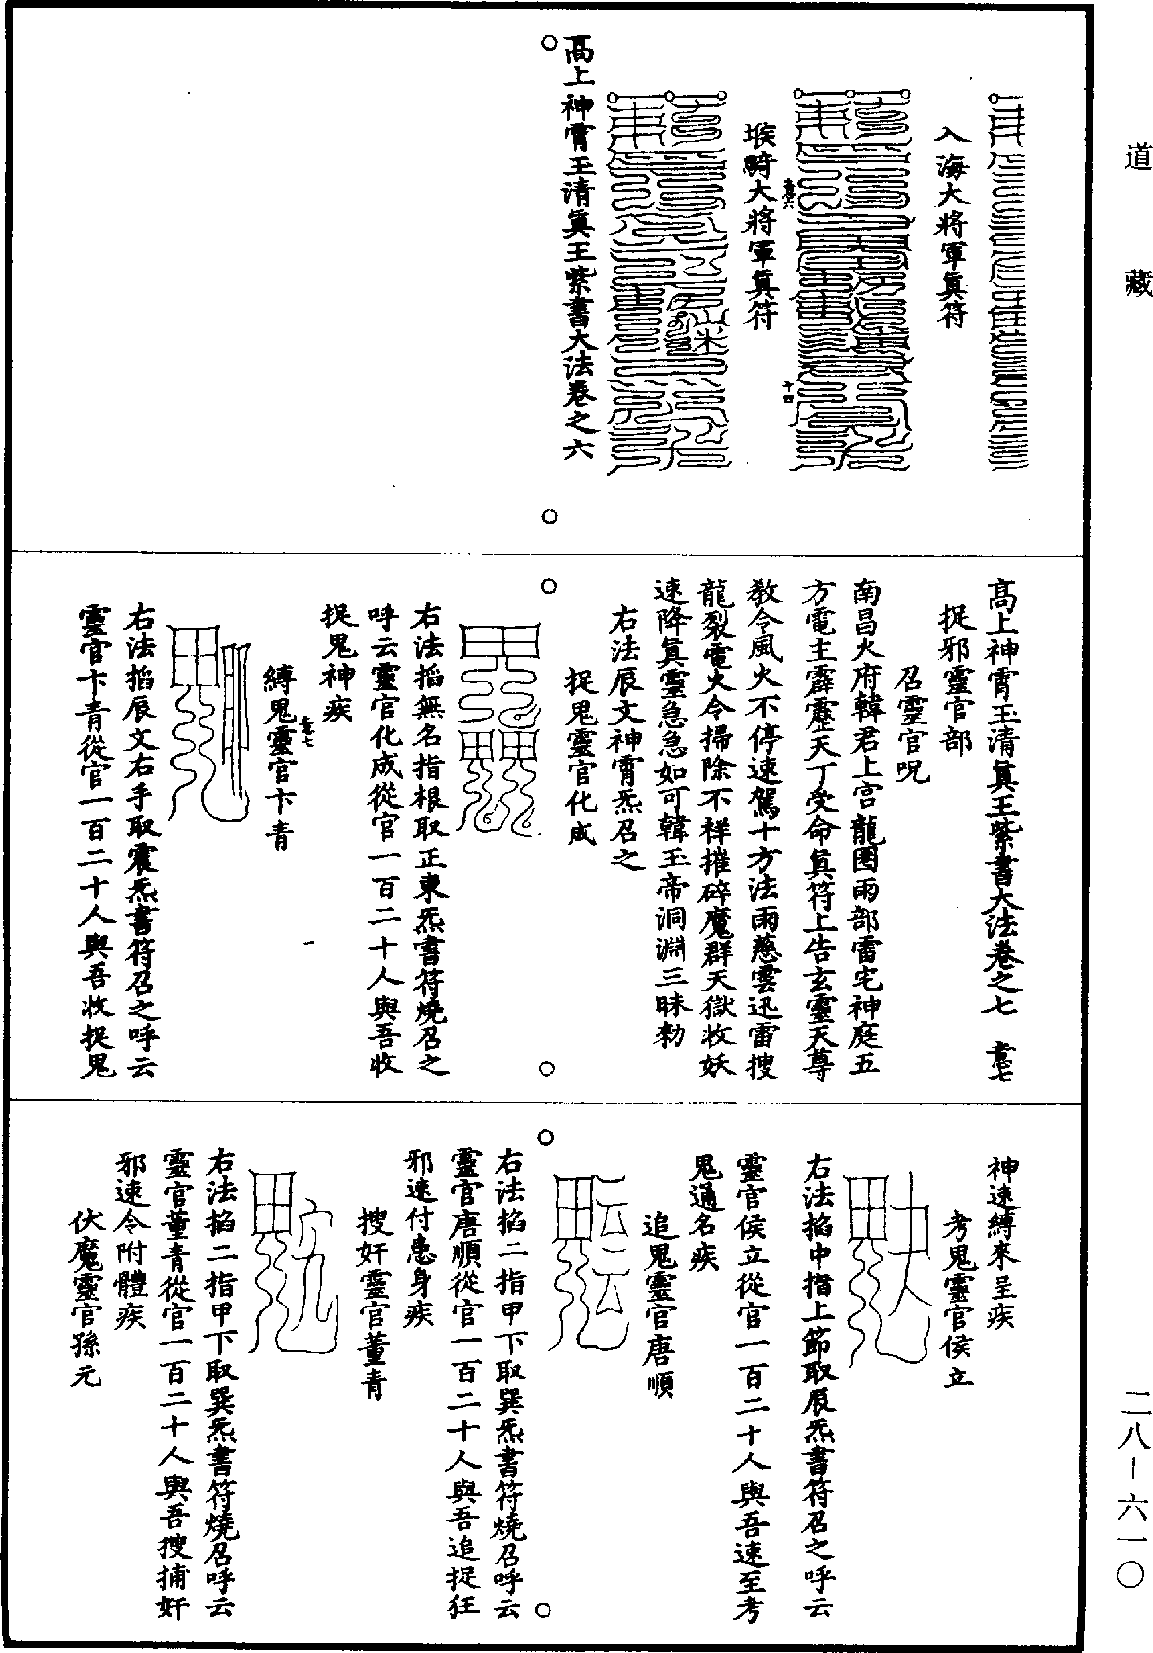 道藏
二八—六一〇
入海大將軍真符
堠騎大將軍真符
壹六
十四
高上神霄玉清真王紫書大法卷之六
高上神霄玉清真王紫書大法卷之七 壹七
捉邪靈官部
召靈官呪
南昌火府韓君上宫龍圉雨部雷宅神庭五
方電主霹靂天丁受命真符上告玄靈天尊
教令風火不停速駕十方法雨慈雲迅雷搜
龍裂電火令掃除不祥摧碎魔群天獄收妖
速降真靈急急如可韓玉帝洞淵三昧勑
右法辰文神霄炁召之
捉鬼靈官化成
右法掐無名指根取正東炁書符燒召之
呼云靈官化成從官一百二十人與吾收
捉鬼神疾
壹七
縛鬼靈官卞青
右法掐辰文右手取震炁書符召之呼云
靈官卞青從官一百二十人與吾收捉鬼
神速縛來呈疾
考鬼靈官侯立
右法掐中指上節取辰炁書符召之呼云
靈官侯立從官一百二十人與吾速至考
鬼通名疾
追鬼靈官唐順
右法掐二指甲下取巽炁書符燒召呼云
靈官唐順從官一百二十人與吾追捉狂
邪速付患身疾
搜奸靈官董青
右法掐二指甲下取巽炁書符燒召呼云
靈官董青從官一百二十人與吾搜捕奸
邪速令附體疾
伏魔靈官孫元